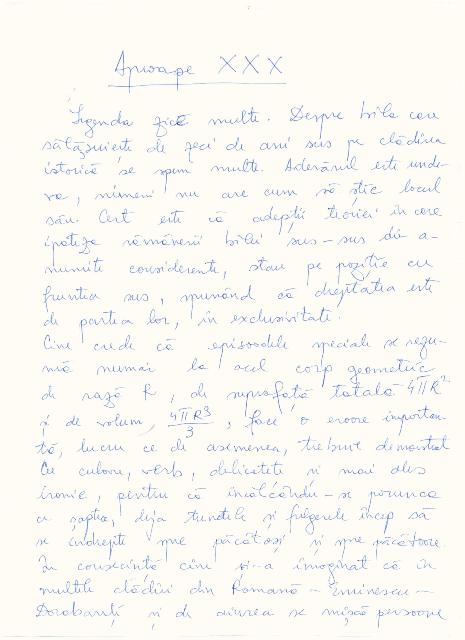 Aproape XXX
Legenda zice multe. Despre bila care
sălăşuieşte de zeci de ani sus pe clădirea
istorică se spun multe. Adevărul este unde-
va, nimeni nu are cum să ştie locul
său. Cert este că adepţii teoriei în care
ipoteza rămânerii bilei sus-sus din a-
numite considerente, stau pe poziţie cu
fruntea sus, spunând că dreptatea este
de partea lor, în exclusivitate.
Cine crede că episoadele speciale se rezu-
mă numai la acel corp geometric
de rază R, de suprafaţă totală 4πR²
şi de volum, 4πR³/3, face o eroare importan-
tă, lucru ce de asemenea, trebuie demonstrat
cu culoare, verb, delicateţe şi mai ales
ironie, pentru că încălcându-se porunca
a şaptea, deja tunetele şi fulgerele încep să
se îndrepte spre păcătoşi şi spre păcătoare.
În consecinţă cine şi-a imaginat că în
multele clădiri din Romană - Eminescu -
Dorobanţi şi de aiurea se mişcă persoane